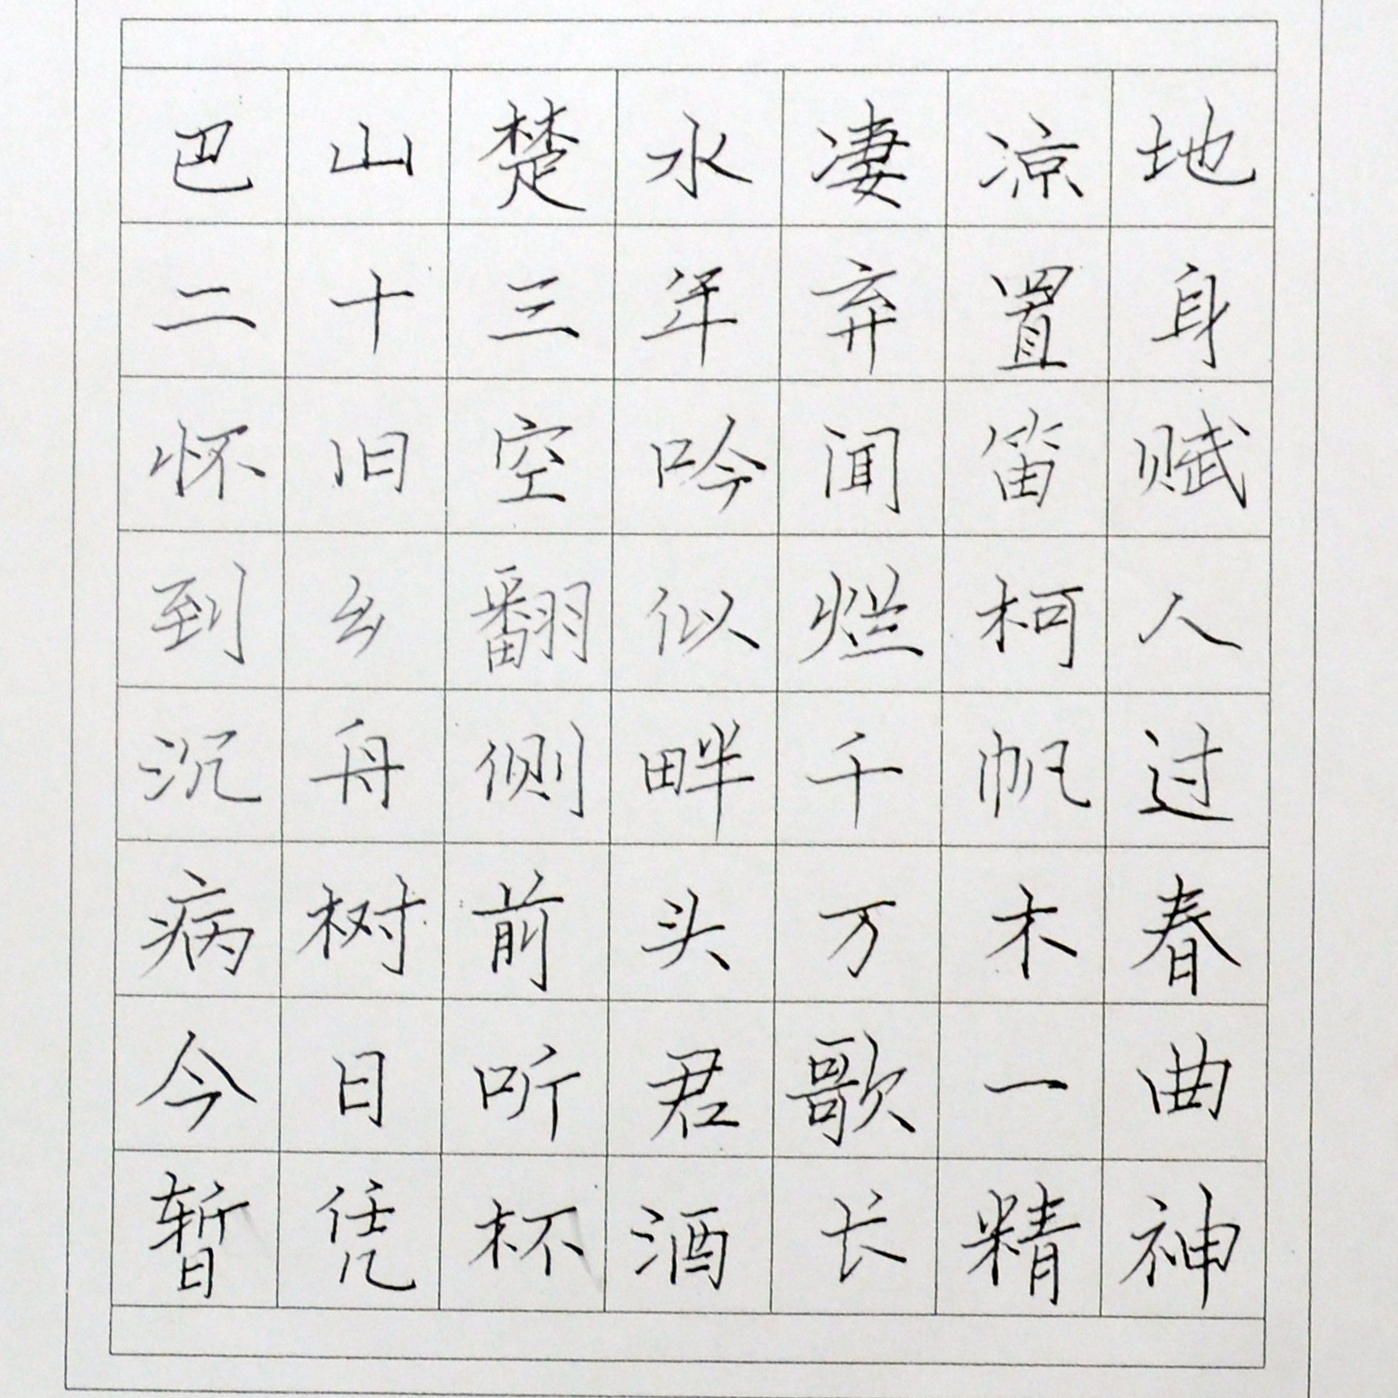 巴山楚水凄凉地
二十三年弃置身
怀旧空吟闻笛赋
到乡翻似烂柯人
沉舟侧畔千帆过
病树前头万木春
今日听君歌一曲
暂凭杯酒长精神